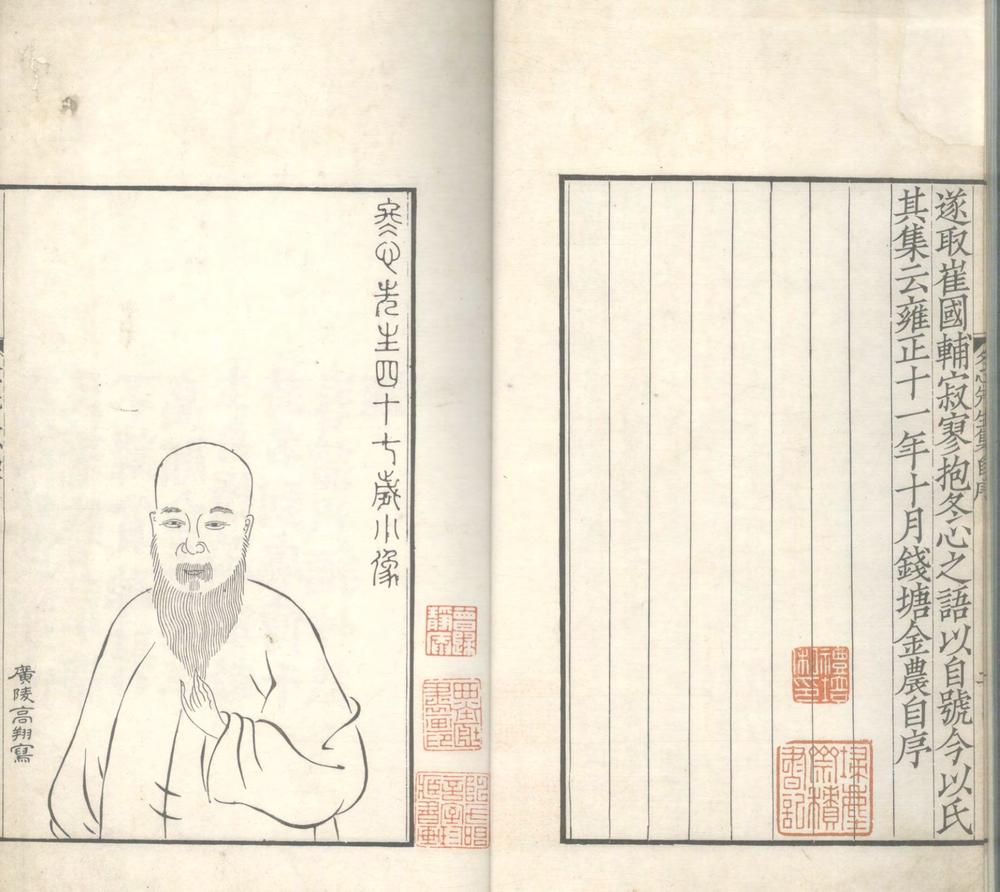 遂取崔國輔寂寥抱冬心之語以自號今以氏
其集云雍正十一年十月錢塘金農自序
冬心先生集自序
寒心先生四十七歲小像
廣陵高翔寫